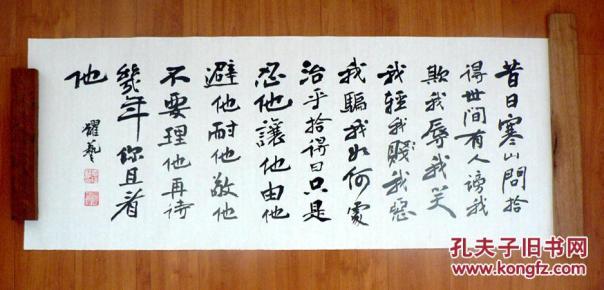 昔日寒山問拾
得世間有人謗我
欺我辱我笑
我輕我賤我惡
我騙我如何處
治乎拾得曰只是
忍他讓他由他
避他耐他敬他
不要理他再待
幾年你且看
他
孔夫子旧书网
www.kongfz.com